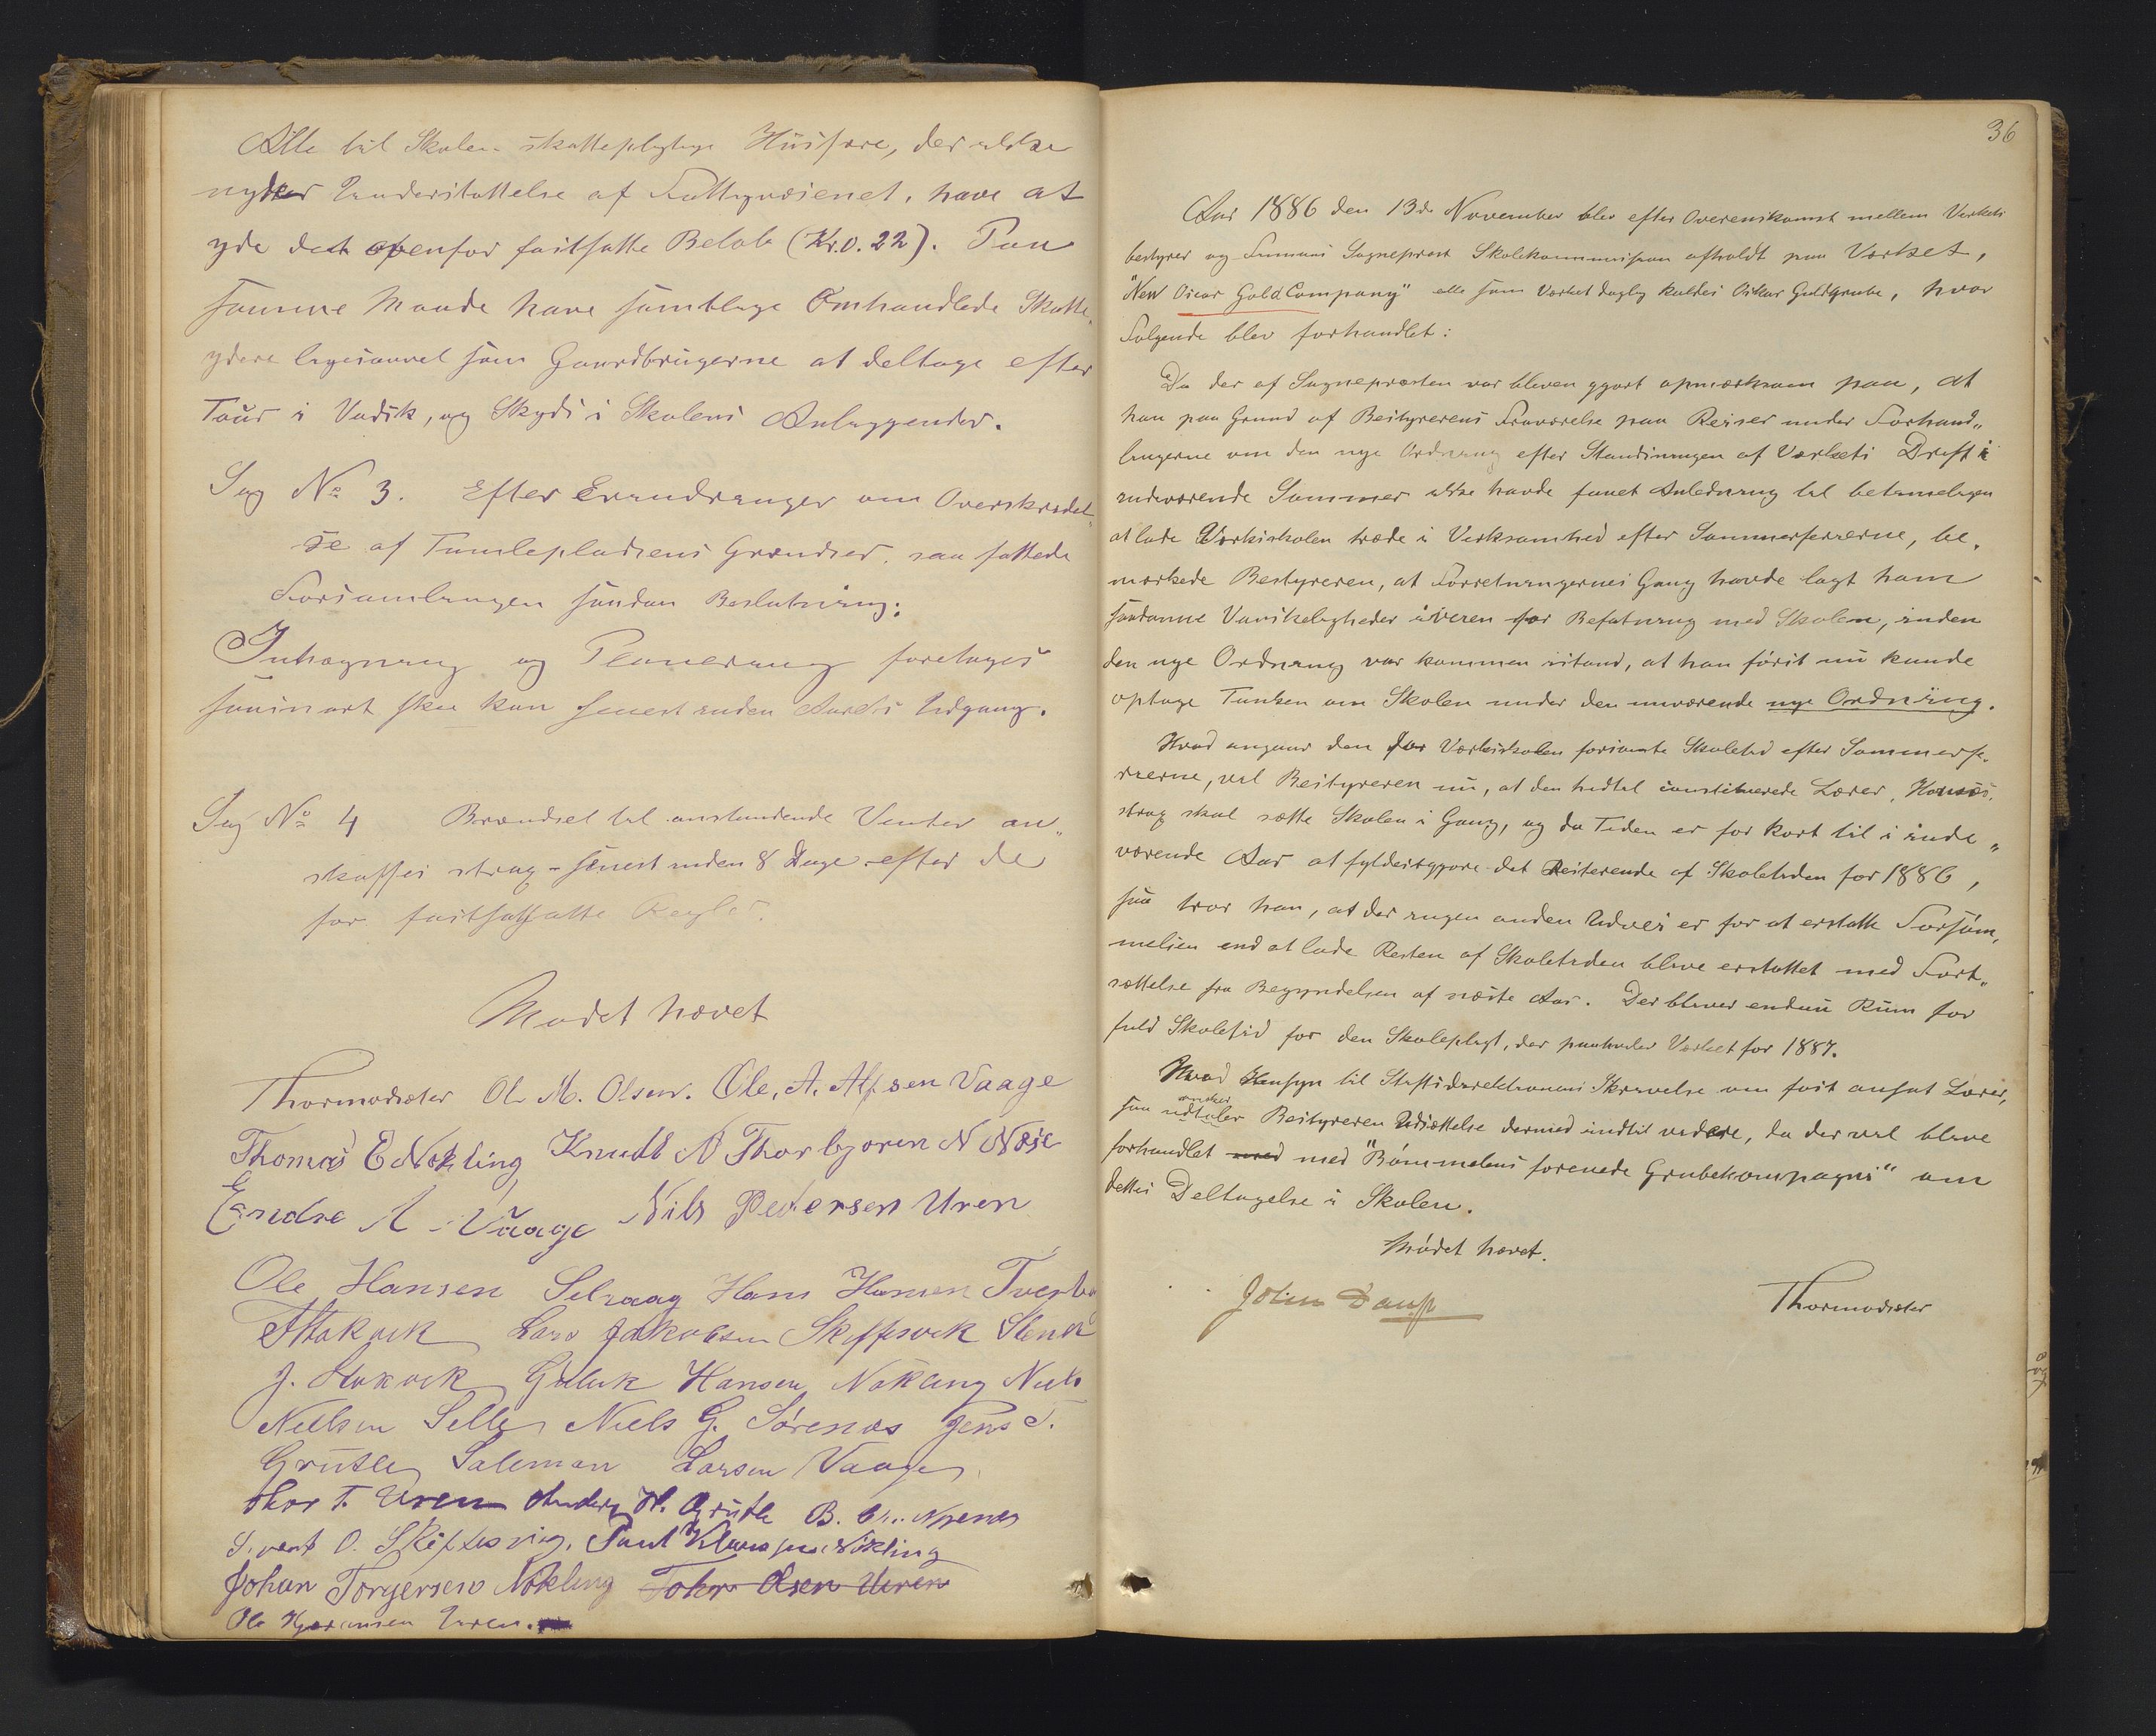 Alle til Skolen skattepligtige Huusfædre, der ikke
nyder Understøttelse af Fattigvæsenet, have at
yde det ovenfor fastsatte Beløb (Kr. 0.22). Paa
samme Maade have samtlige Omhandlede Skatte„
ydere ligesaavel som Gaardbrugerne at deltage efter
Tour i Vadsk, og Skyds i Skolens Anliggender.
Sag No 3. Efter Erindringer om Overskridel„
se af Tumlepladsens Grændser, saa fattede
Forsamlingen saadan Beslutning:
Inhegning og Planering foretages
saasnart skee kan senest inden Aarets Udgang.
Sag No 4 Brændsel til anstundende Vinter an„
skaffes strax - senest inden 8 Dage efter de
for fastsatte Regler.
Mødet hævet
Thormodsæter Ole M. Olsen. Ole. A. Alfsen Vaage
Thomas E Nøkling Knudt N Thorbjørn N Næse
Endre A Vaage Nils Pedersen Uren
Ole Hansen Selvaag Hans Hansen
Stokvik Lars Jakobsen Skiftesvik
J. Stokvik Hansen Nøkling Niels
Nielsen Selle Niels G. Sørenæs Jens T.
Grutle Salemon Larsen Vaage
Thor T. Uren Anders H. Grutle B.
Sivert O. Skiftesvig. Paul Klausen Nøkling
Johan Torgersen Nøkling Tohr Olsen Uren
Ole Uren.
36
Aar 1886 den 13de November blev efter Overenskomst mellem Verkets
bestyrer og Finnaas Sogneprest Skolekommission afholdt paa Værket,
"New Oscar Gold Company" elle som Værket daglig kaldes Oskar Guldgrube, hvor
Følgende blev forhandlet:
Da der af Sognepresten var bleven gjort opmærksom paa, at
han paa Grund af Bestyrerens Fraværelse paa Reiser under Forhand„
lingerne om den nye Ordning efter Standsningen af Værkets Drift i
indeværende Sommer ikke havde faaet Anledning til betimeligen
at lade Verkskolen træde i Virksomhed efter Sommerferierne, be„
mærkede Bestyreren, at Forretningernes Gang havde lagt ham
saadanne Vanskeligheder iveien for Befatning med Skolen, inden
den nye Ordning var kommen istand, at han først nu kunde
optage Tanken om Skolen under den nuværende nye Ordning.
Hvad angaar den for Værkskolen forsømte Skoletid efter Sommerfe„
rierne, vil Bestyreren nu, at den hidtil constituerede Lærer,
strax skal sætte Skolen i Gang, og da Tiden er for kort til i inde„
værende Aar at fyldestgjøre det Resterende af Skoletiden for 1886,
saa tror han, at der ingen anden Udvei er for at erstatte Forsøm„
melsen end at lade Resten af Skoletiden blive erstattet med Fort„
sættelse fra Begyndelsen af næste Aar. Der bliver endnu Rum for
fuld Skoletid for den Skolepligt, der paahviler Værket for 1887.
Hvad Hensyn til Stiftsdirektionens Skrivelse om fast ansat Lærer,
saa udtaler ønsker Bestyreren Udsættelse dermed indtil videre, da der vil blive
forhandlet med med "Bømmeløens forenede Grubekompagni" om
dettes Deltagelse i Skolen.
Mødet hævet.
John Daw jr Thormodsæter